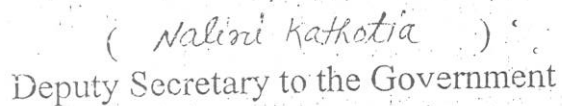 ( Nalini Kathotia )
Deputy Secretary to the Government